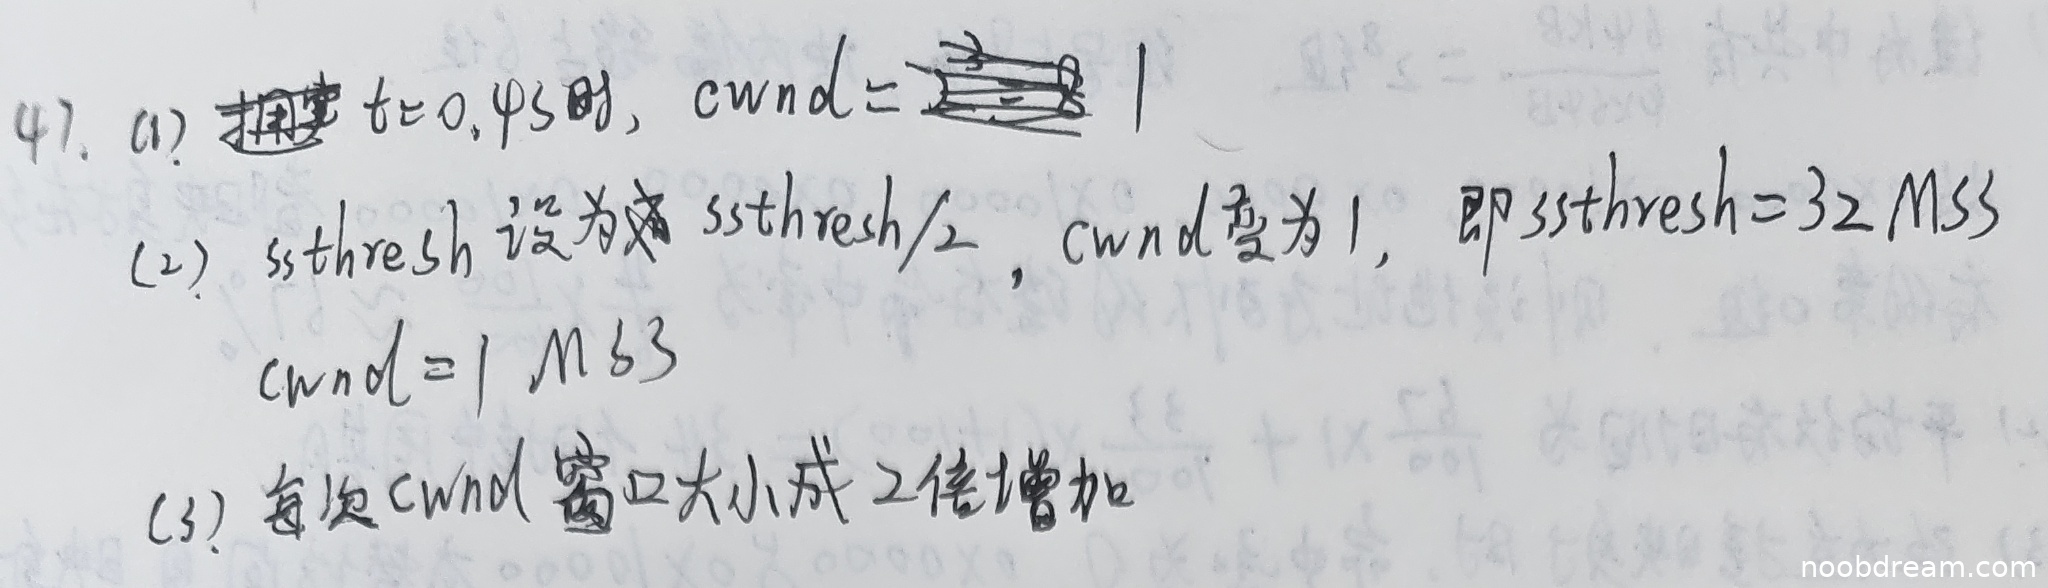 47. (1) t=0.4s时, cwnd= 1
(2) ssthresh 设为 ssthresh/2, cwnd变为1, 即ssthresh=32 MSS
cwnd=1 MSS
(3) 每次cwnd窗口大小成2倍增加
noobdream.com